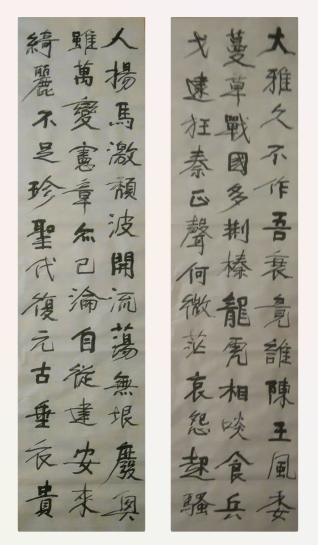 大雅久不作吾衰竟誰陳王風委
蔓草戰國多荆榛龍虎相啖食兵
戈逮狂秦正聲何微茫哀怨起騷
人揚馬激頹波開流蕩無垠廢興
雖萬變憲章亦已淪自從建安來
綺麗不足珍聖代復元古垂衣貴